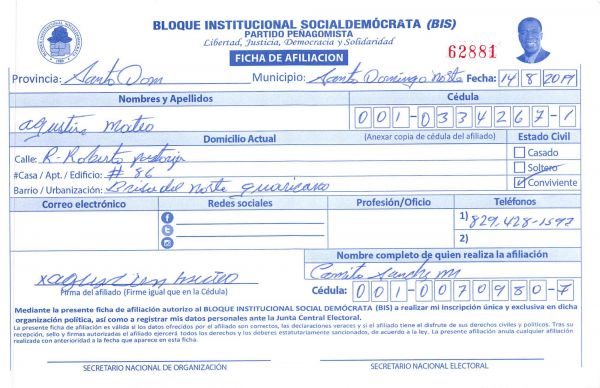 BLOQUE INSTITUCIONAL SOCIALDEMÓCRATA (BIS)
PARTIDO PEÑAGOMISTA
Libertad, Justicia, Democracia y Solidaridad
FICHA DE AFILIACION
62881
Provincia: Santo Dom Municipio: Santo Domingo Norte Fecha: 14/8/2019
Nombres y Apellidos Cédula
agustin Mateo 001-0334267-1
Domicilio Actual (Anexar copia de cédula del afiliado) Estado Civil
Calle: R-Roberto Casado
#Casa / Apt. / Edificio: # 86 Soltero
Barrio / Urbanización: Brisa del Norte guaricano Conviviente
Correo electrónico Redes sociales Profesión/Oficio Teléfonos
1) 829-428-1597
2)
Nombre completo de quien realiza la afiliación
x agustin mateo Camilo Sanche M
Firma del afiliado (Firme igual que en la Cédula) Cédula: 001-0070980-7
Mediante la presente ficha de afiliación autorizo al BLOQUE INSTITUCIONAL SOCIAL DEMÓCRATA (BIS) a realizar mi inscripción única y exclusiva en dicha
organización política, así como a registrar mis datos personales ante la Junta Central Electoral.
La presente ficha de afiliación es válida si los datos ofrecidos por el afiliado son correctos, las declaraciones veraces y si el afiliado tiene el disfrute de sus derechos civiles y políticos. Tras su
recepción, sello y firmas autorizadas el afiliado ejercerá todos los derechos y los deberes estatutariamente sancionados, de acuerdo a la ley. La presente afiliación anula cualquier afiliación
realizada con anterioridad a la fecha que aparece en esta ficha.
SECRETARIO NACIONAL DE ORGANIZACIÓN SECRETARIO NACIONAL ELECTORAL